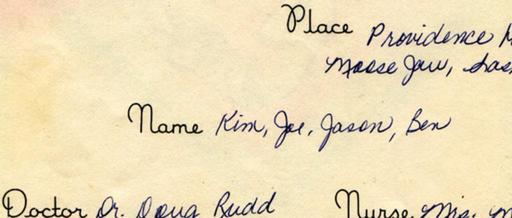 Place Providence
Moose Jaw, Sas
Name Kim, Joe, Jason, Ben
Doctor Dr. Doug Rudd Nurse